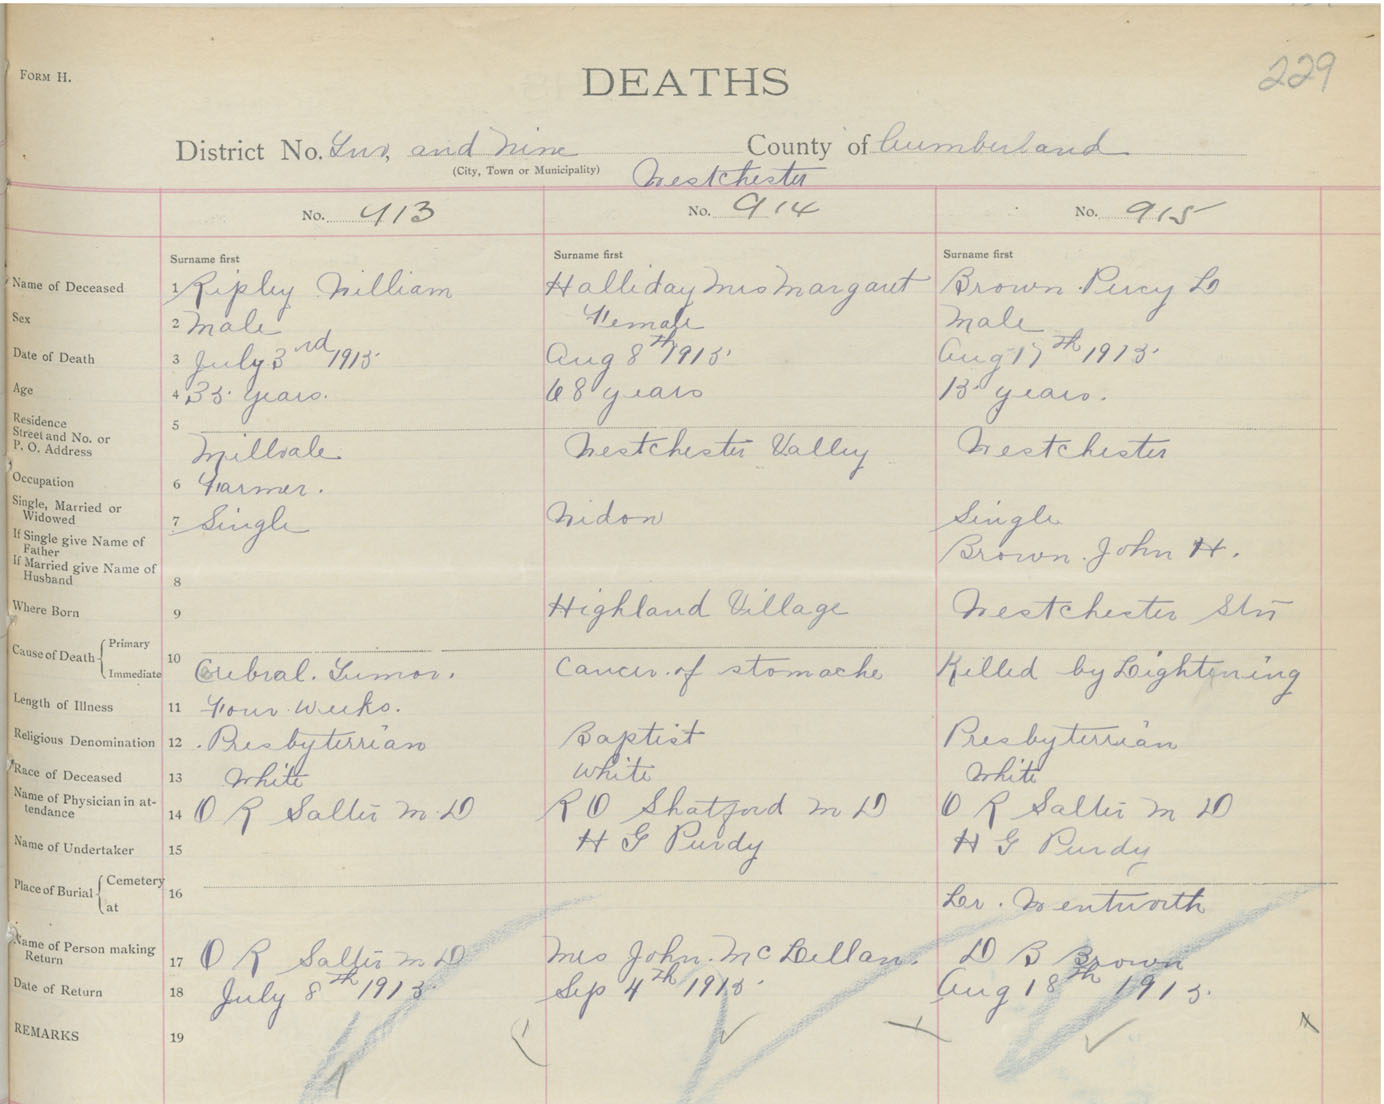 229
FORM H.
DEATHS
District No. Two, and Nine County of Cumberland
(City, Town or Municipality) Westchester
No. 913 No. 914 No. 915
Surname first Surname first Surname first
Name of Deceased 1 Ripley William Halliday Mrs Margaret Brown Percy D
Sex 2 Male Female Male
Date of Death 3 July 3rd 1915 Aug 8th 1915 Aug 17th 1915
Age 4 35 years. 68 years 15 years.
Residence
Street and No. or
P. O. Address 5 Millvale Westchester Valley Westchester
Occupation 6 Farmer.
Single, Married or
Widowed 7 Single Widow Single
If Single give Name of
Father Brown John H.
If Married give Name of
Husband 8
Where Born 9 Highland Village Westchester Stn
Cause of Death Primary
Immediate 10 Cerebral Tumor. Cancer of stomache Killed by Lightening
Length of Illness 11 Four weeks.
Religious Denomination 12 Presbyterrian Baptist Presbyterrian
Race of Deceased 13 White White White
Name of Physician in at-
tendance 14 O R Salter M D R O Shatford M D O R Salter M D
Name of Undertaker 15 H G Purdy H G Purdy
Place of Burial Cemetery
at 16 Lr. Wentworth
Name of Person making
Return 17 O R Salter M D Mrs John McLellan. D B Brown
Date of Return 18 July 8th 1915 Sep 4th 1915 Aug 18th 1915.
REMARKS 19